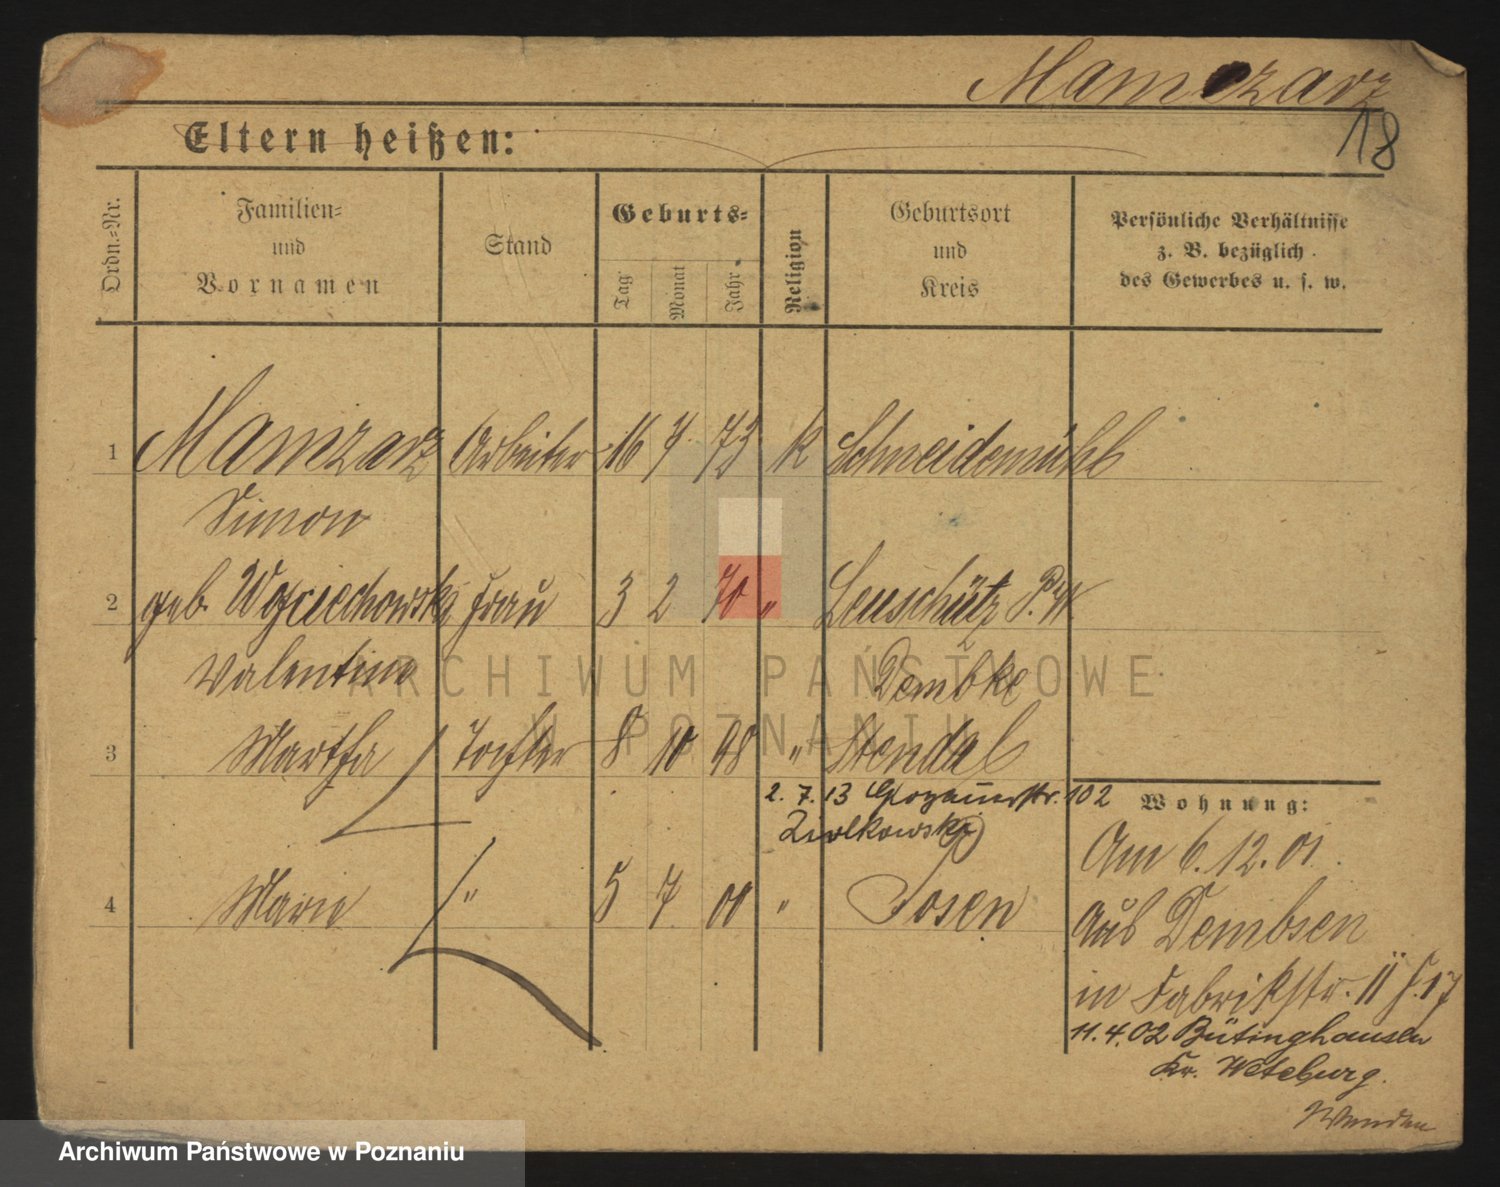 Mamczarz
18
Eltern heißen:
Ordn.=Nr.
Familien=
und
Vornamen
Stand
Geburts=
Tag
Monat
Jahr
Religion
Geburtsort
und
Kreis
Persönliche Verhältnisse
z. B. bezüglich
des Gewerbes u. s. w.
1 Mamzarz Arbeiter 16 7 73 K Schneidemühl
Simon
2 geb. Wojciechowski Frau 3 2 70 " P. W.
Valentine Dembke
3 Martha Tochter 8 10 98 " Stendal
2. 7. 13 102
Ziolkowski
Wohnung:
Am 6. 12. 01.
4 Marie " 5 7 00 " Posen
aus Dembsen
in Fabrikstr. 11 17
11. 4. 02 Bütinghausen
Kr.
Wenden
ARCHIWUM PAŃSTWOWE
W POZNANIU
Archiwum Państwowe w Poznaniu